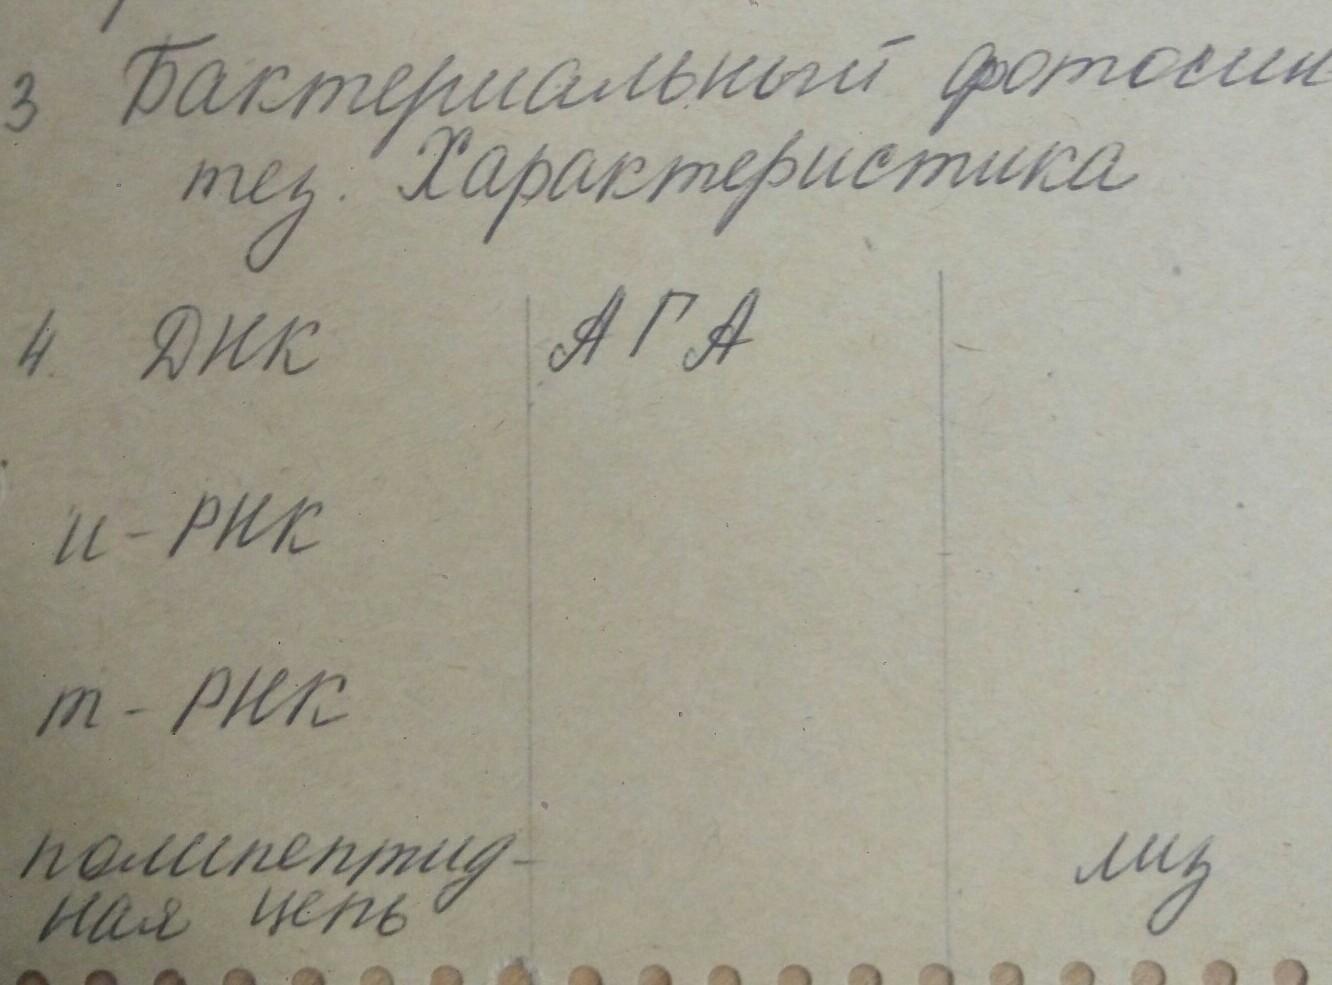 3 Бактериальный фотосин
тез. Характеристика
4. ДНК АГА
и-РНК
т-РНК
полипептид-
ная цепь лиз